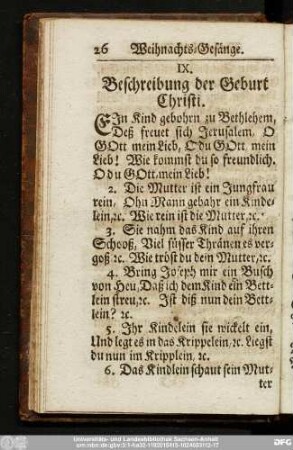 26 Weihnachts-Gesänge.
IX.
Beschreibung der Geburt
Christi.
EIn Kind gebohrn zu Bethlehem,
Deß freuet sich Jerusalem, O
GOtt mein Lieb, O du GOtt mein
Lieb! Wie kommst du so freundlich.
O du GOtt, mein Lieb!
2. Die Mutter ist ein Jungfrau
rein, Ohn Mann gebahr ein Kinde-
lein, ꝛc. Wie rein ist die Mutter, ꝛc.
3. Sie nahm das Kind auf ihren
Schooß, Viel süsser Thränen es ver-
goß ꝛc. Wie tröst du dein Mutter, ꝛc.
4. Bring Joseph mir ein Busch
von Heu, Daß ich dem Kind ein Bett-
lein streu, ꝛc. Ist diß nun dein Bett-
lein? ꝛc.
5. Ihr Kindelein sie wickelt ein,
Und legt es in das Krippelein, ꝛc. Liegst
du nun im Kripplein, ꝛc.
6. Das Kindlein schaut sein Mut-
ter
Universitäts- und Landesbibliothek Sachsen-Anhalt